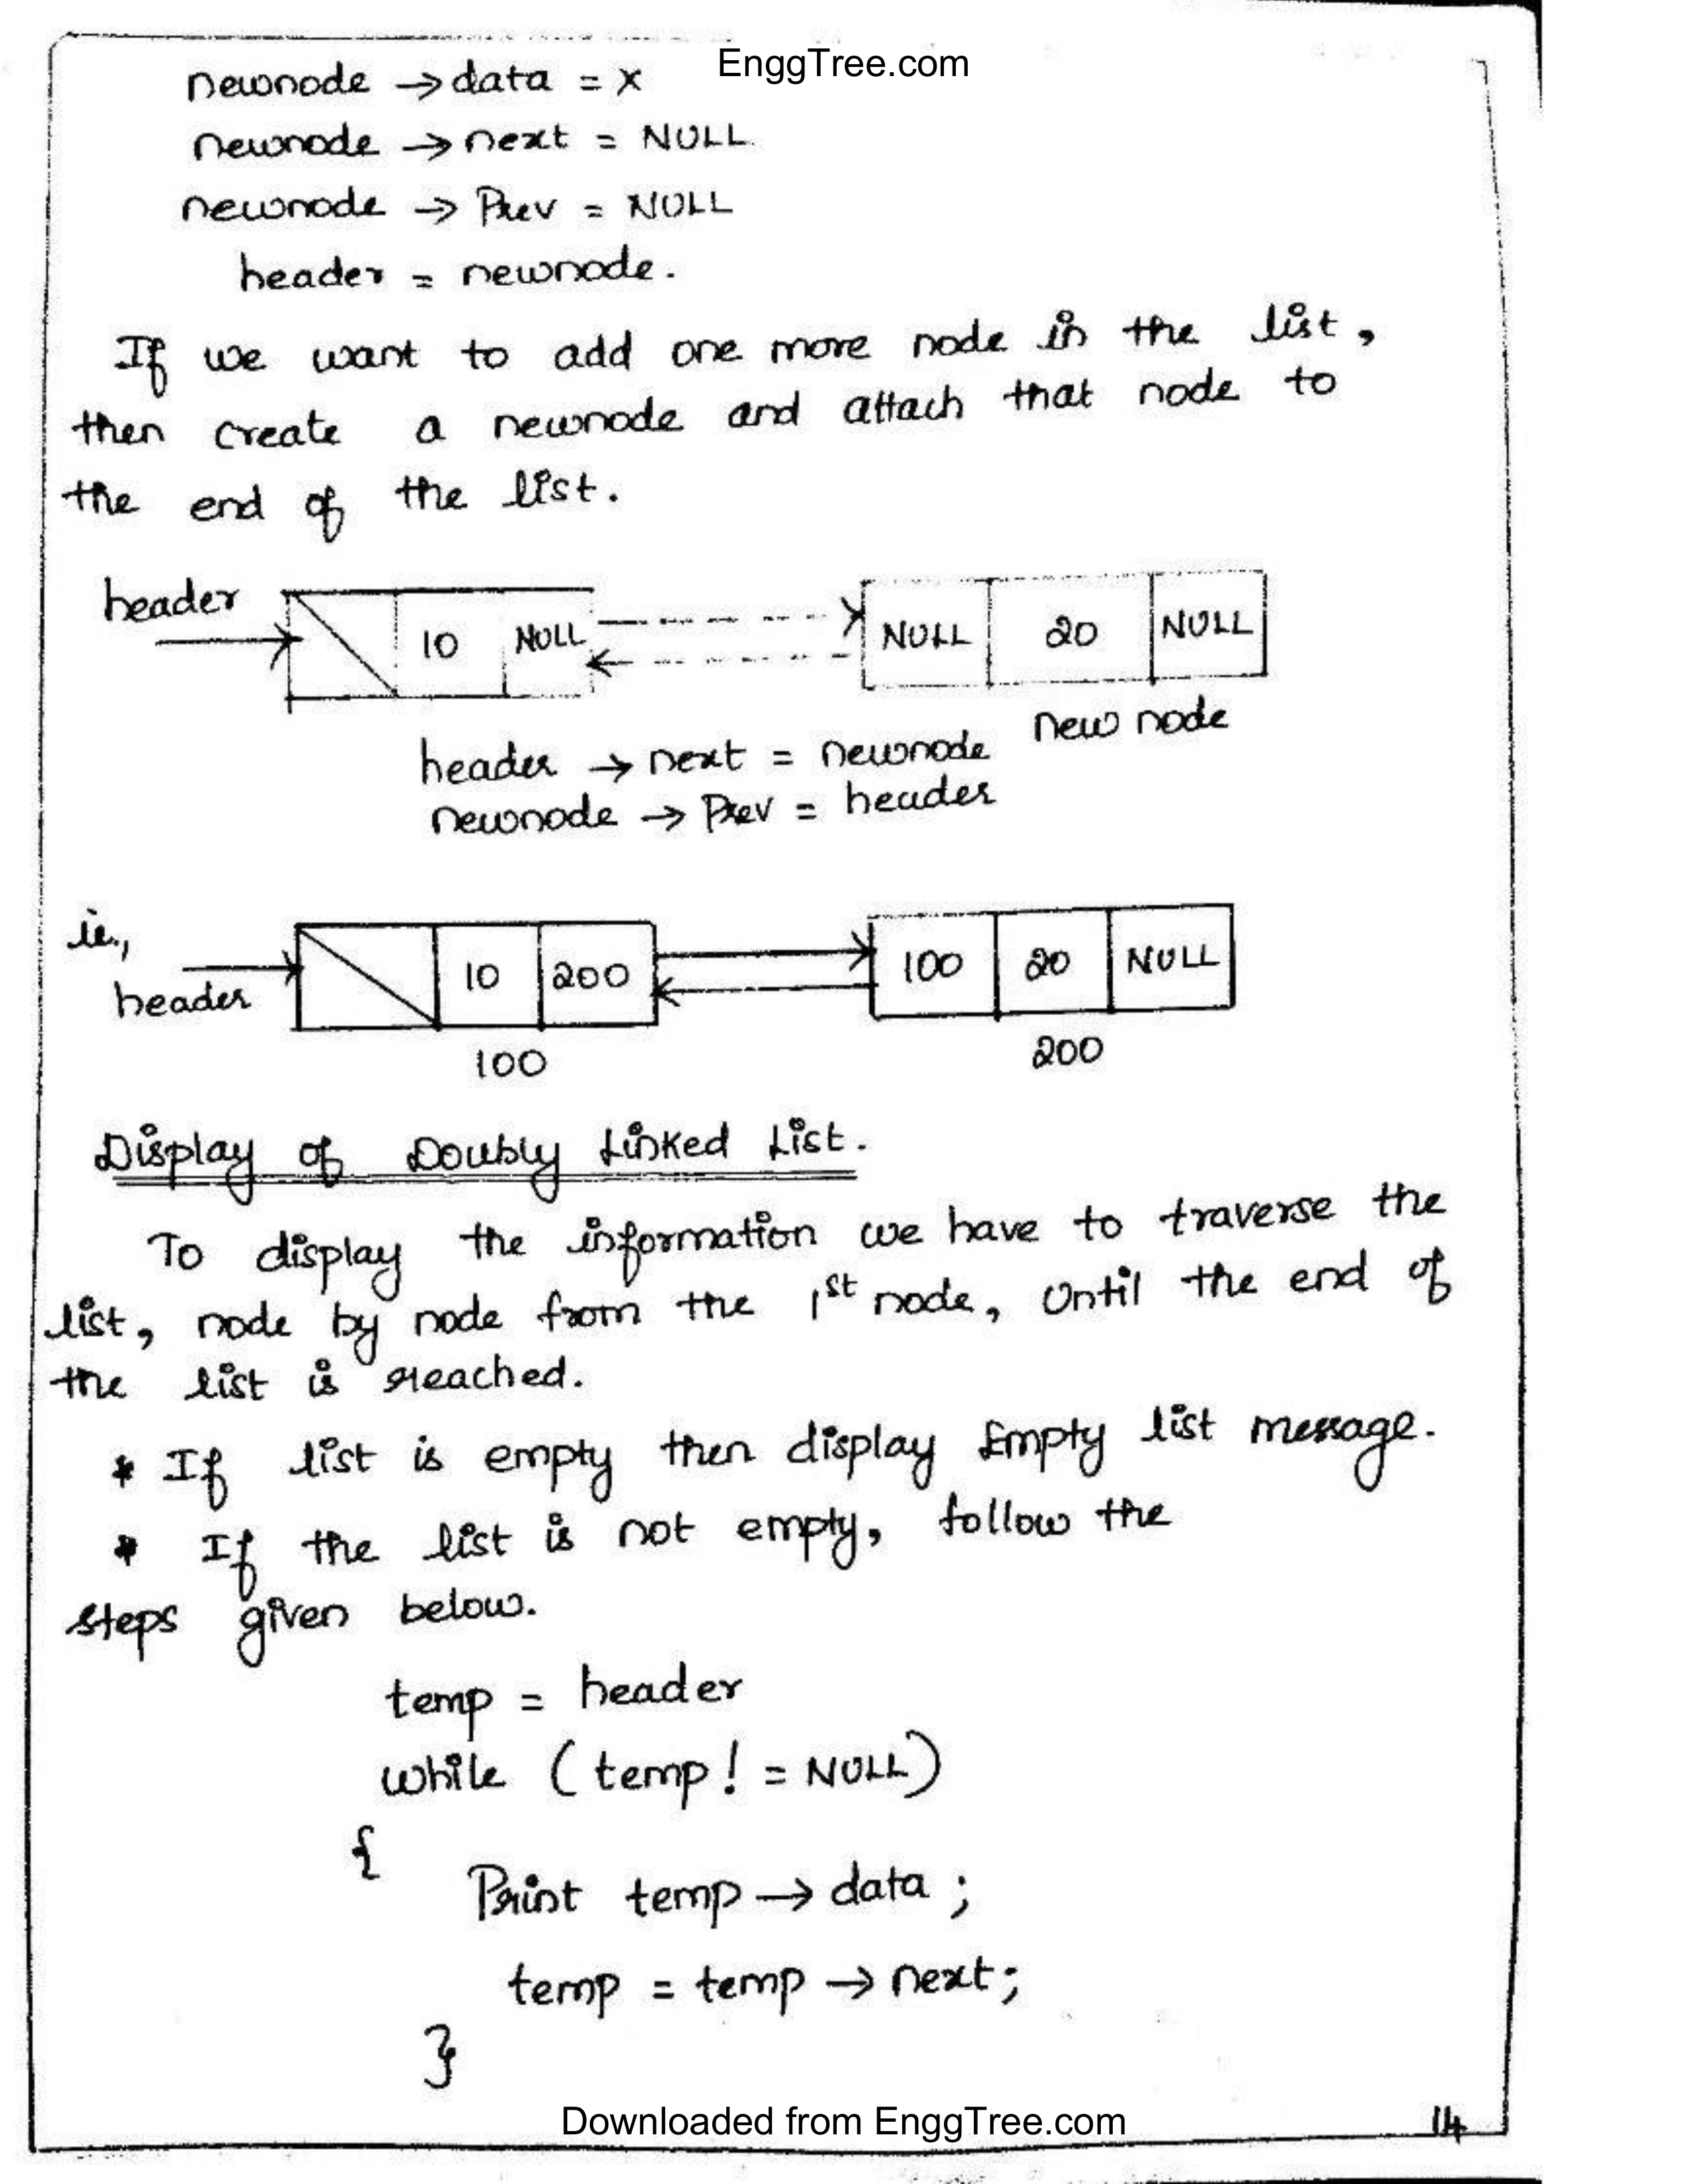 EnggTree.com
newnode → data = x
newnode → next = NULL
newnode → Prev = NULL
header = newnode.
If we want to add one more node in the list,
then create a newnode and attach that node to
the end of the list.
header
10 NULL NULL 20 NULL
new node
header → next = newnode
newnode → Prev = header
ie.,
header
10 200 100 20 NULL
100 200
Display of Doubly Linked List.
To display the information we have to traverse the
list, node by node from the 1st node, Until the end of
the list is reached.
* If list is empty then display Empty list message.
* If the list is not empty, follow the
steps given below.
temp = header
while (temp! = NULL)
{
Print temp → data ;
temp = temp → next;
}
Downloaded from EnggTree.com
14